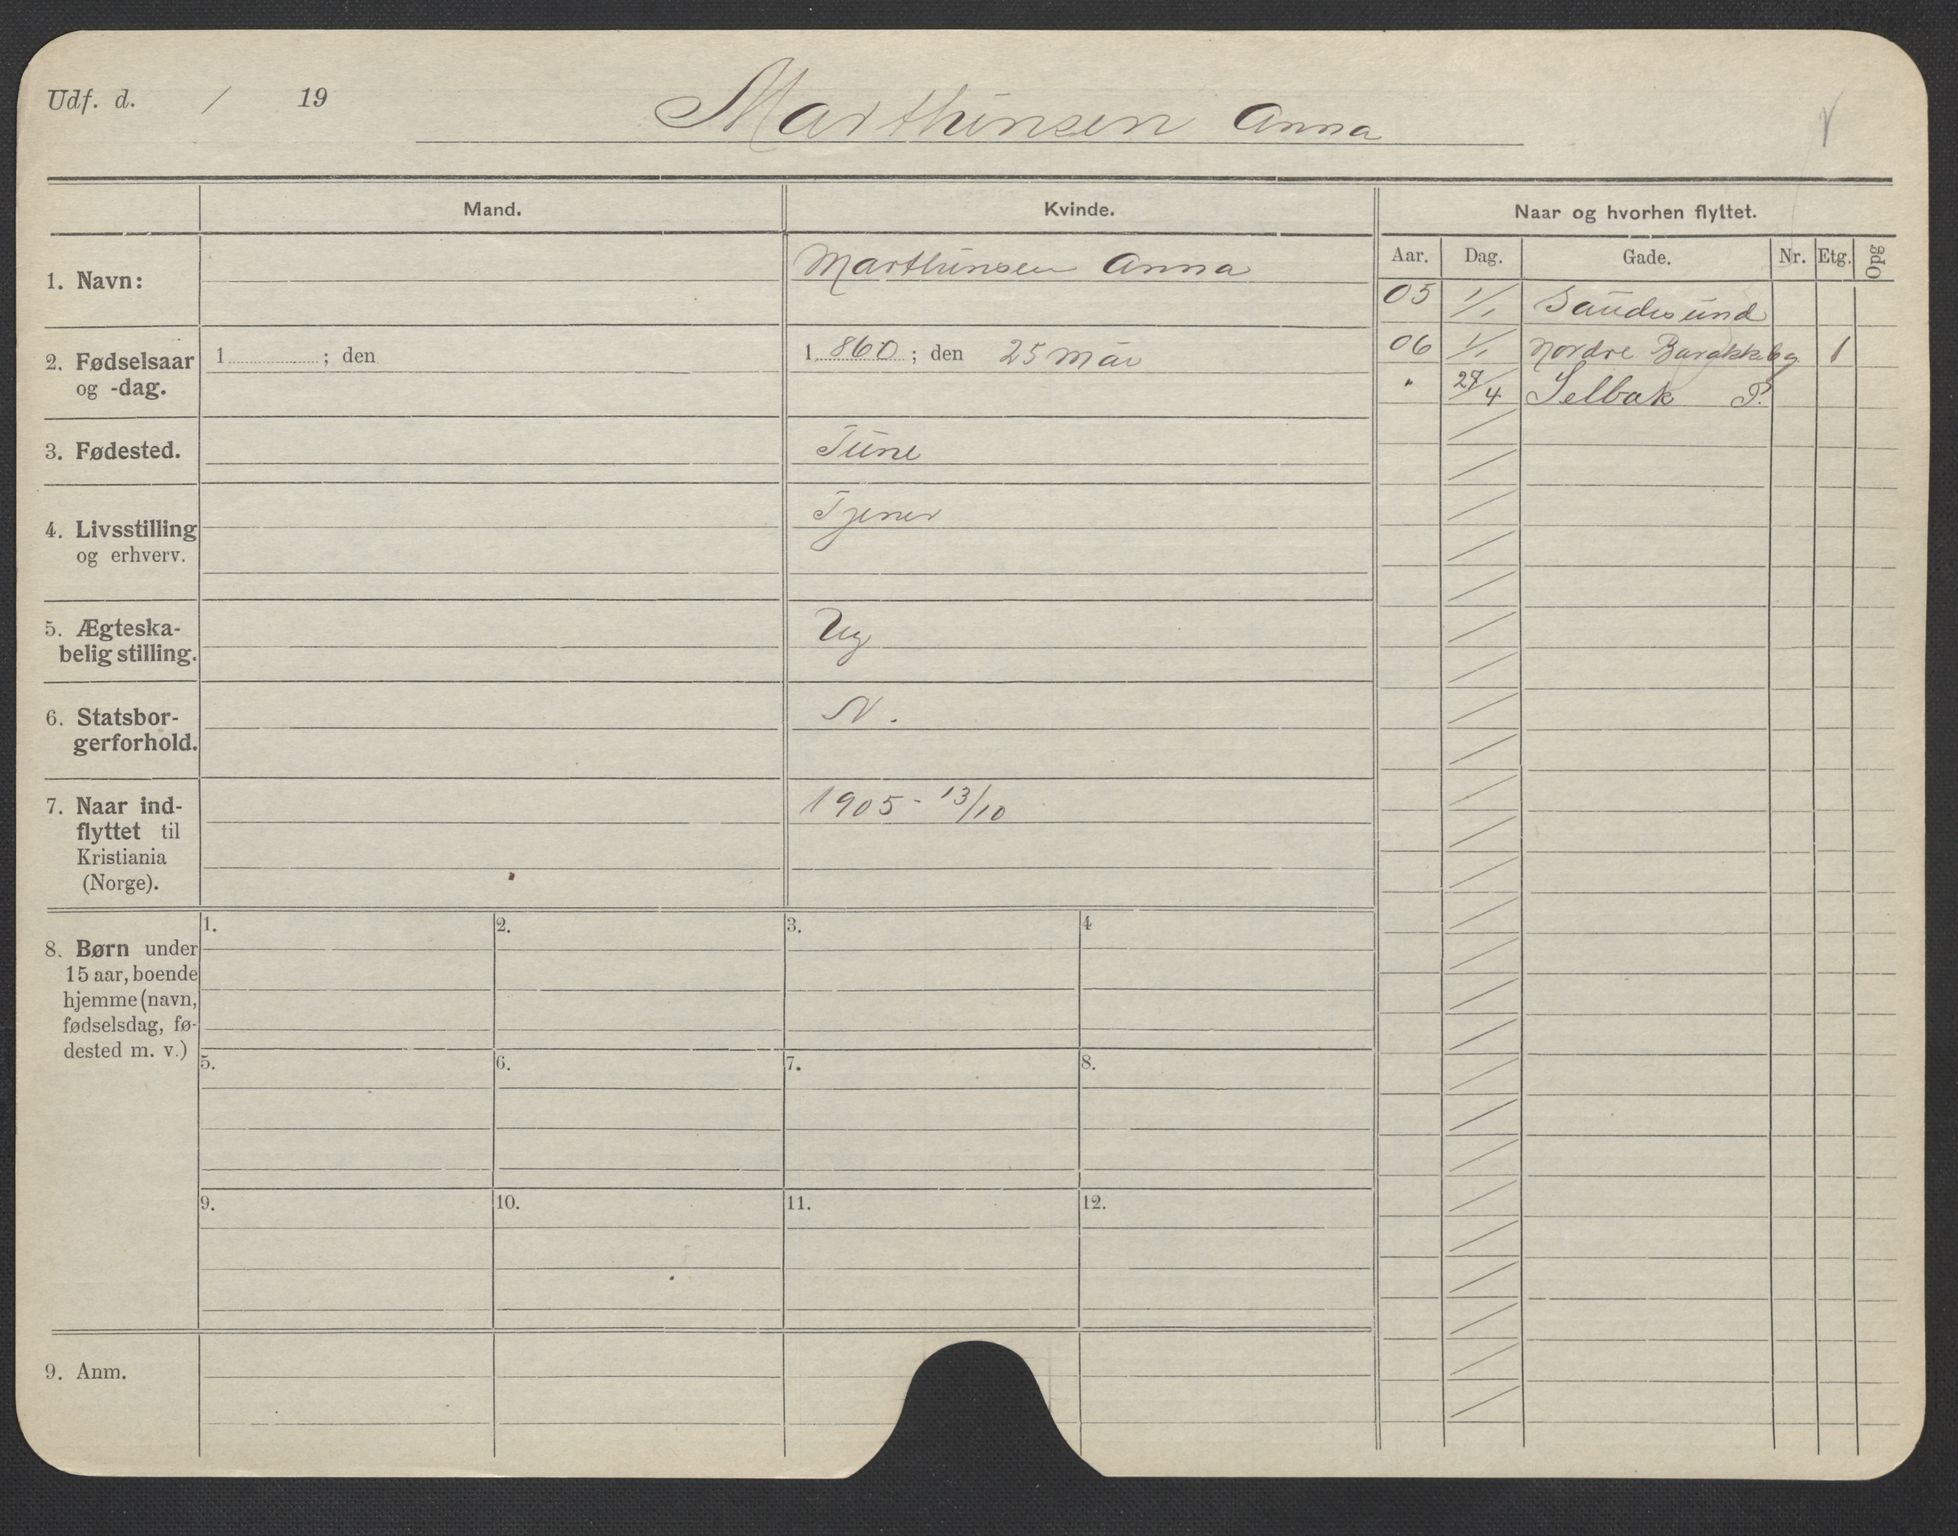 Udf. d. / 19
Marthinsen Anna
Mand.
Kvinde.
Naar og hvorhen flyttet.
Aar. Dag. Gade. Nr. Etg. Opg
1. Navn:
Marthinsen Anna
05 1/1 Sandesund
2. Fødselsaar
og -dag.
1 ; den
1 860 ; den 25 Mar
06 1/1 Nordre Barakkebg 1
" 27/4 Selbak P.
3. Fødested.
Tune
4. Livsstilling
og erhverv.
Tjener
5. Ægteska-
belig stilling.
Ug
6. Statsbor-
gerforhold.
N.
7. Naar ind-
flyttet til
Kristiania
(Norge).
1905 - 13/10
8. Børn under
15 aar, boende
hjemme (navn,
fødselsdag, fø-
dested m. v.)
1. 2. 3. 4
5. 6. 7. 8.
9. 10. 11. 12.
9. Anm.